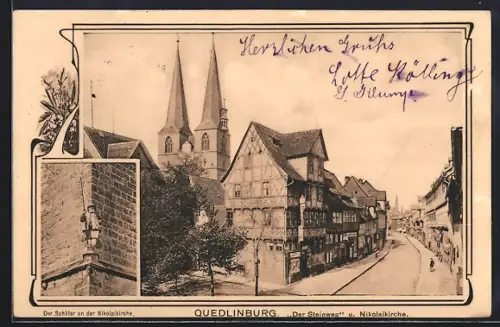 Herzlichen Gruß
Lotte
Der Schäfer an der Nikolaikirche.
QUEDLINBURG. „Der Steinweg" u. Nikolaikirche.